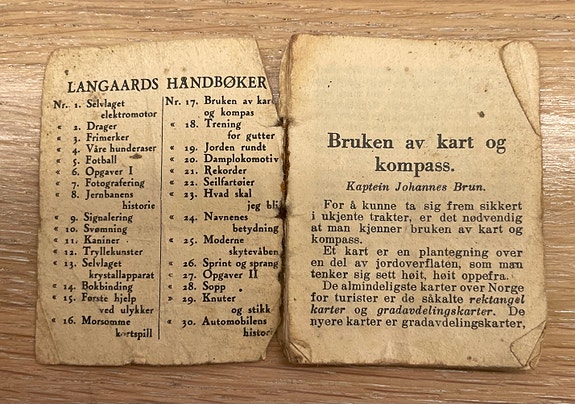 LANGAARDS HANDBØKER
Nr. 1. Selvlaget
elektromotor
« 2. Drager
« 3. Frimerker
« 4. Våre hunderaser
« 5. Fotball
« 6. Opgaver I
« 7. Fotografering
« 8. Jernbanens
historie
« 9. Signalering
« 10. Svømning
« 11. Kaniner
« 12. Tryllekunster
« 13. Selvlaget
krystallapparat
« 14. Bokbinding
« 15. Første hjelp
ved ulykker
« 16. Morsomme
kortspill
Nr. 17. Bruken av kart
og kompas
« 18. Trening
for gutter
« 19. Jorden rundt
« 20. Damplokomotiv
« 21. Rekorder
« 22. Seilfartøier
« 23. Hvad skal
jeg bli
« 24. Navnenes
betydning
« 25. Moderne
skytevåben
« 26. Sprint og sprang
« 27. Opgaver II
« 28. Sopp
« 29. Knuter
og stikk
« 30. Automobilens
histori
Bruken av kart og
kompass.
Kaptein Johannes Brun.
For å kunne ta sig frem sikkert
i ukjente trakter, er det nødvendig
at man kjenner bruken av kart og
kompass.
Et kart er en plantegning over
en del av jordoverflaten, som man
tenker sig sett høit, høit oppefra.
De almindeligste karter over Norge
for turister er de såkalte rektangel
karter og gradavdelingskarter. De
nyere karter er gradavdelingskarter,